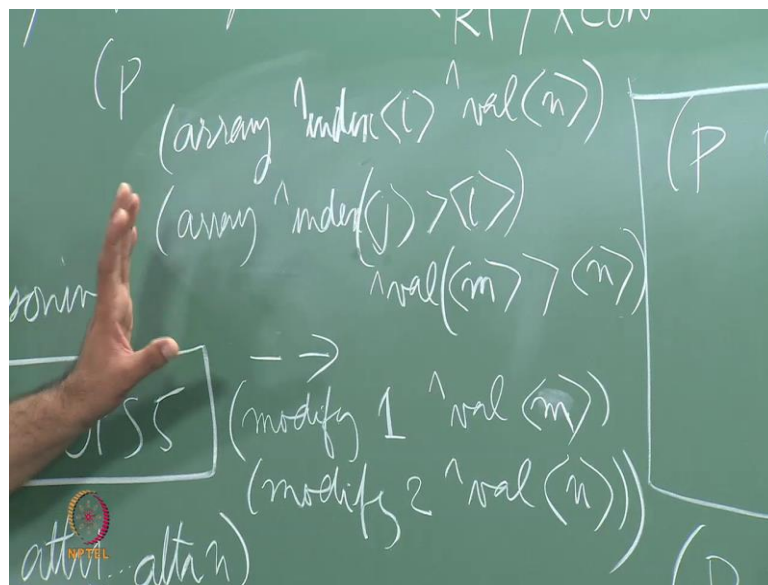 R1 / XCON
(P
(array ^index<i> ^val<n>)
(array ^index(<j> > <i>)
^val(<m> > <n>)
(P
-->
(modify 1 ^val <m>)
(modify 2 ^val <n>))
OPS5
NPTEL
attr1...attrn)
(P